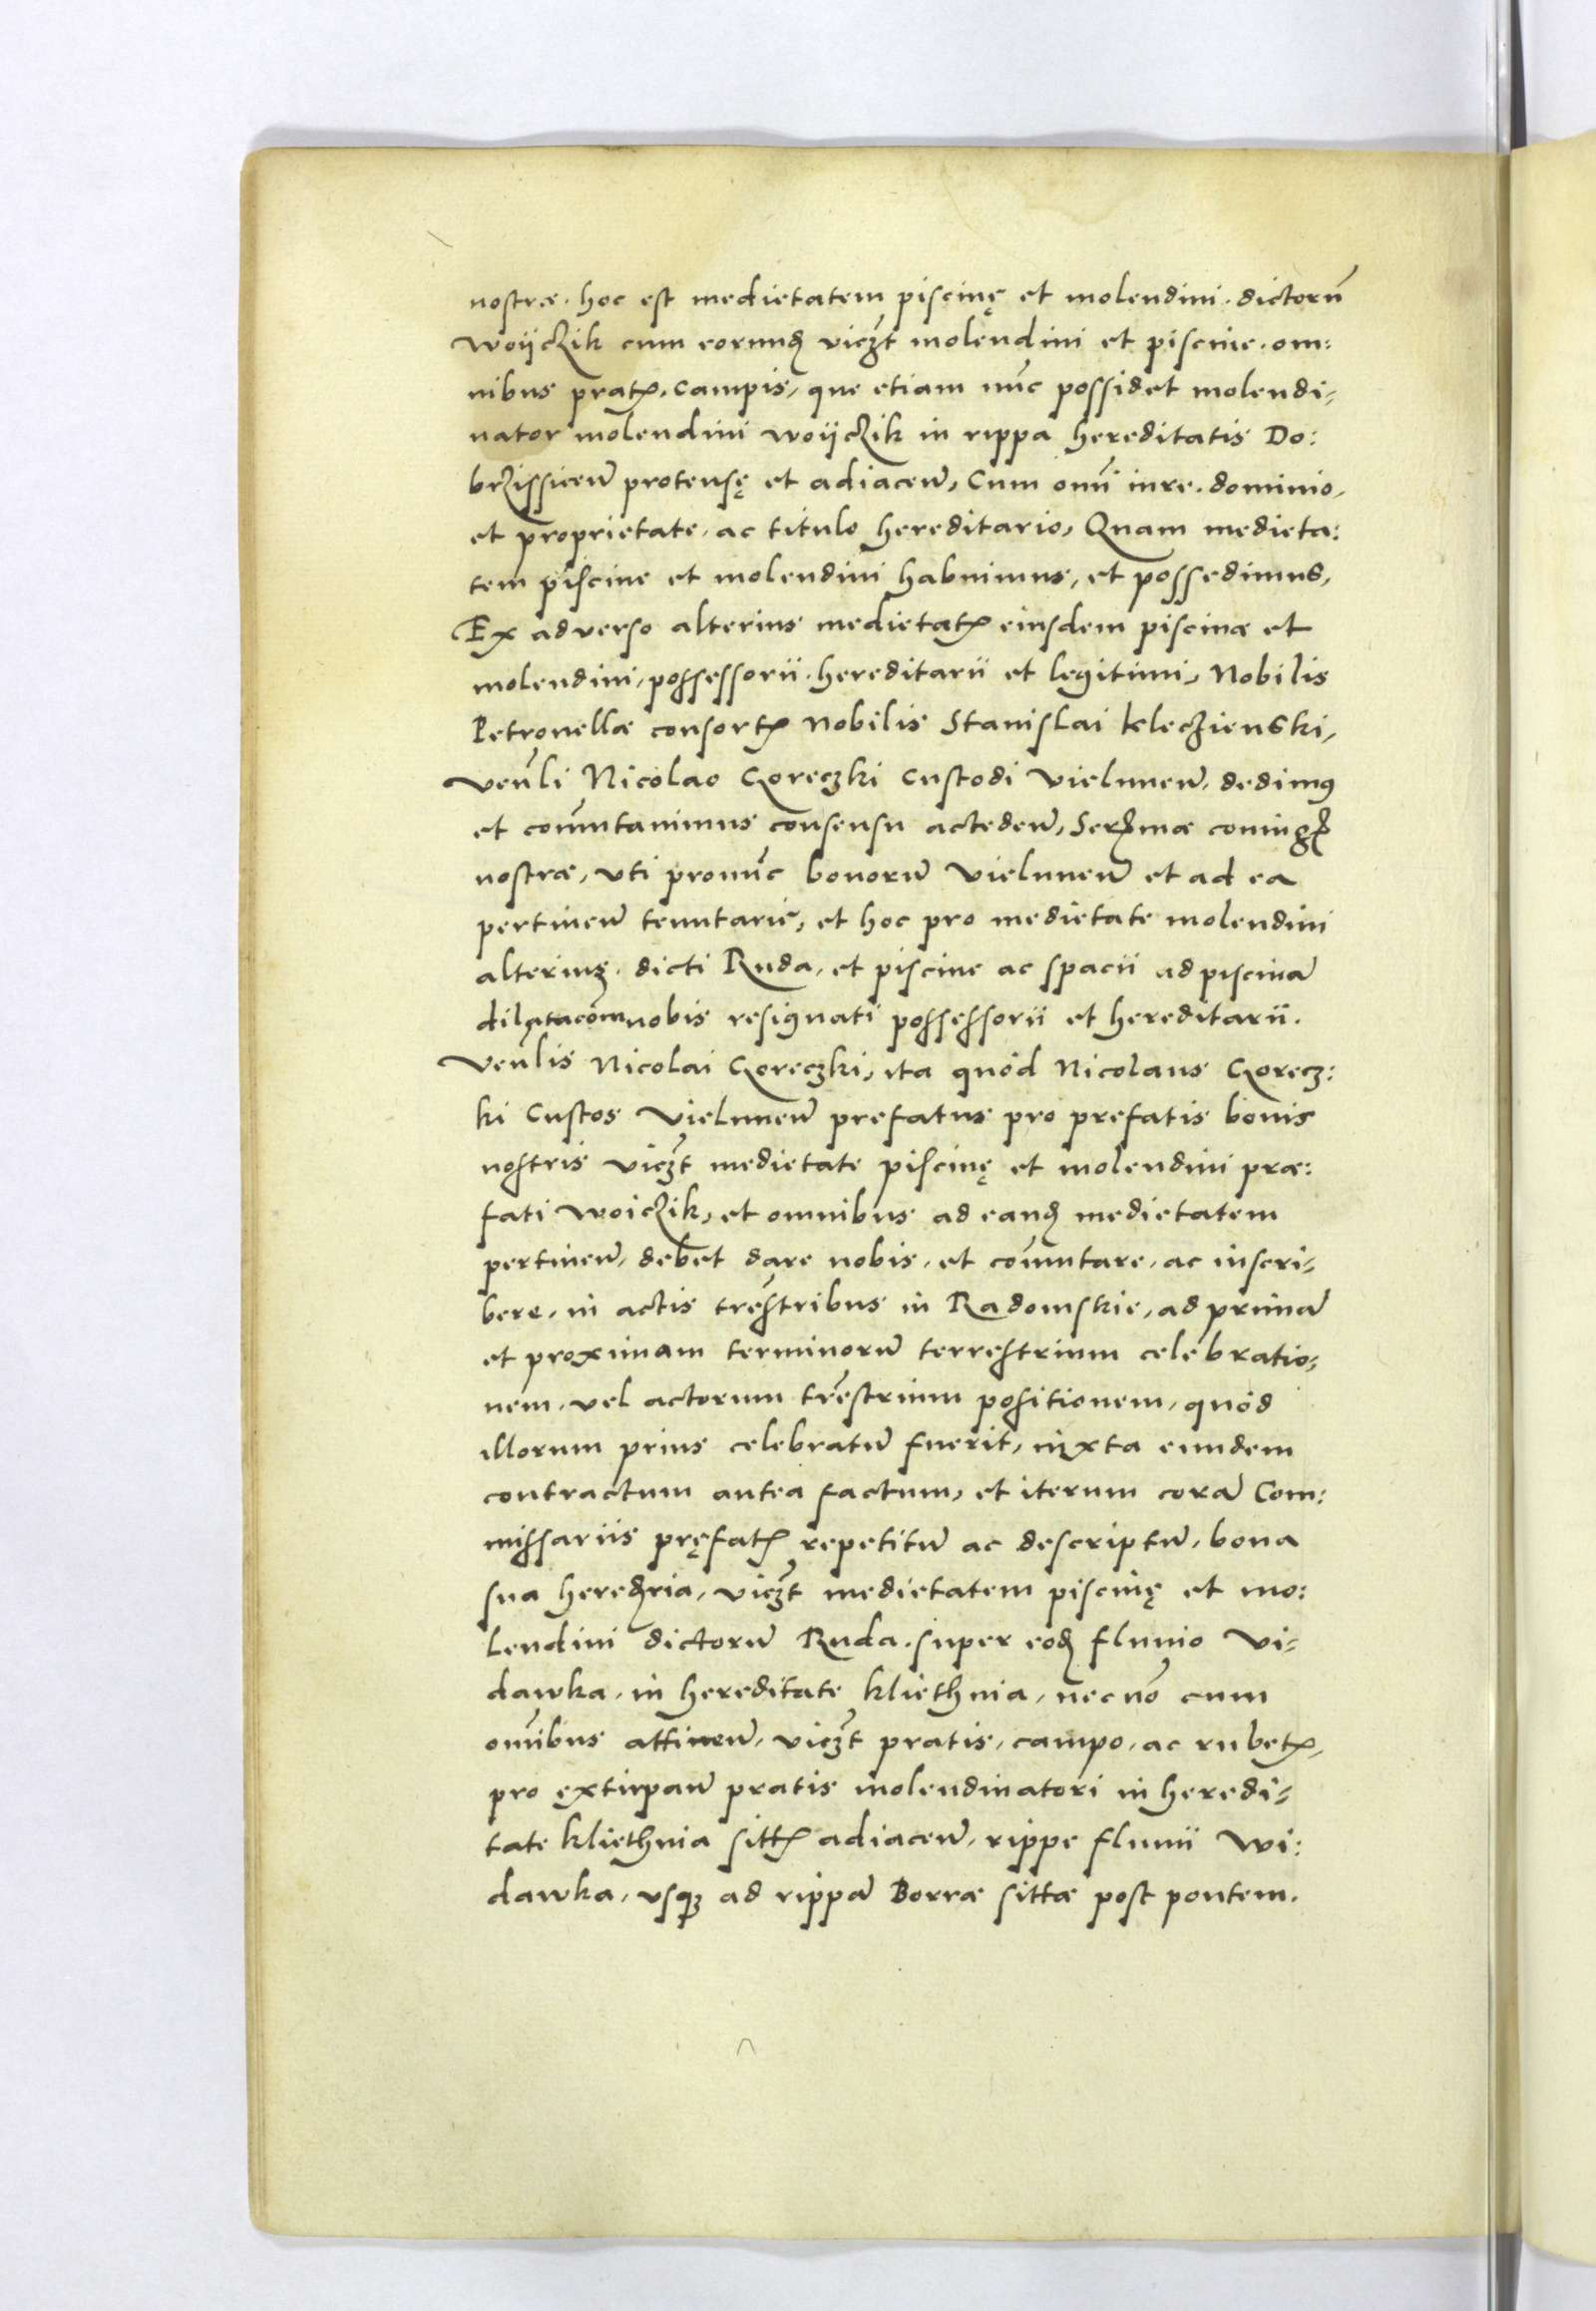 nostræ. hoc est medietatem piscinę et molendini. dictorū
Woÿczik cum eorund viczt molendini et piscine. om:
nibus pratꝭ. campis, que etiam nūc possidet molendi,
nator molendini Woÿczik in rippa hereditatis Do:
brzissicen̄ protensę et adiacen̄, Cum omī iure. dominio,
et proprietate, ac titulo hereditario, Quam medieta:
tem piscine et molendini habuimus, et possedimus,
Ex adverso alterius medietatꝭ eiusdem piscinæ et
molendini, possessorii. hereditarii et legitimi, Nobilis
Petronellæ consortꝭ Nobilis Stanislai kleczienski,
Ven̄li Nicolao Goreczki Custodi Vielunen̄, dedimꝰ
et com̄utavimus consensu acteden̄,
nostræ, vti pronūc bonorum̄ Vielunen̄ et ad ea
pertinen̄ tenutarię, et hoc pro medietate molendini
alterius. dicti Ruda, et piscine ac spacii ad piscinā
dilatacōm nobis resignati possessorii et hereditarii.
Ven̄lis Nicolai Goreczki, ita quòd Nicolaus Gorecz:
ki Custos Vielunen̄ prefatus pro prefatis bonis
nostris viczt medietate piscinę et molendini præ:
fati Woiczik, et omnibus ad eand medietatem
pertinen̄, debet dare nobis, et com̄utare, ac inscri,
bere, in actis trēstribus in Radomskie, ad primā
et proximam terminorum̄ terrestrium celebratio,
nem, vel actorum trēstrium positionem, quòd
illorum prius celebratum̄ fuerit, iuxta eundem
contractum antea factum, et iterum corā Com:
missariis pręfatꝭ repetitum̄ ac descriptum̄, bona
sua heredria, viczt medietatem piscinę et mo:
lendini dictorum̄ Ruda. super eod fluuio Vi,
dawka, in hereditate kliethnia, necnō cum
om̄ibus attinen̄, viczt pratis, campo, ac rubetꝭ,
pro extirpan̄ pratis molendinatori in heredi,
tate kliethnia sittꝭ adiacen̄, rippe fluuii Wi:
dawka, vsqꝫ ad rippā Borræ sittæ post pontem.